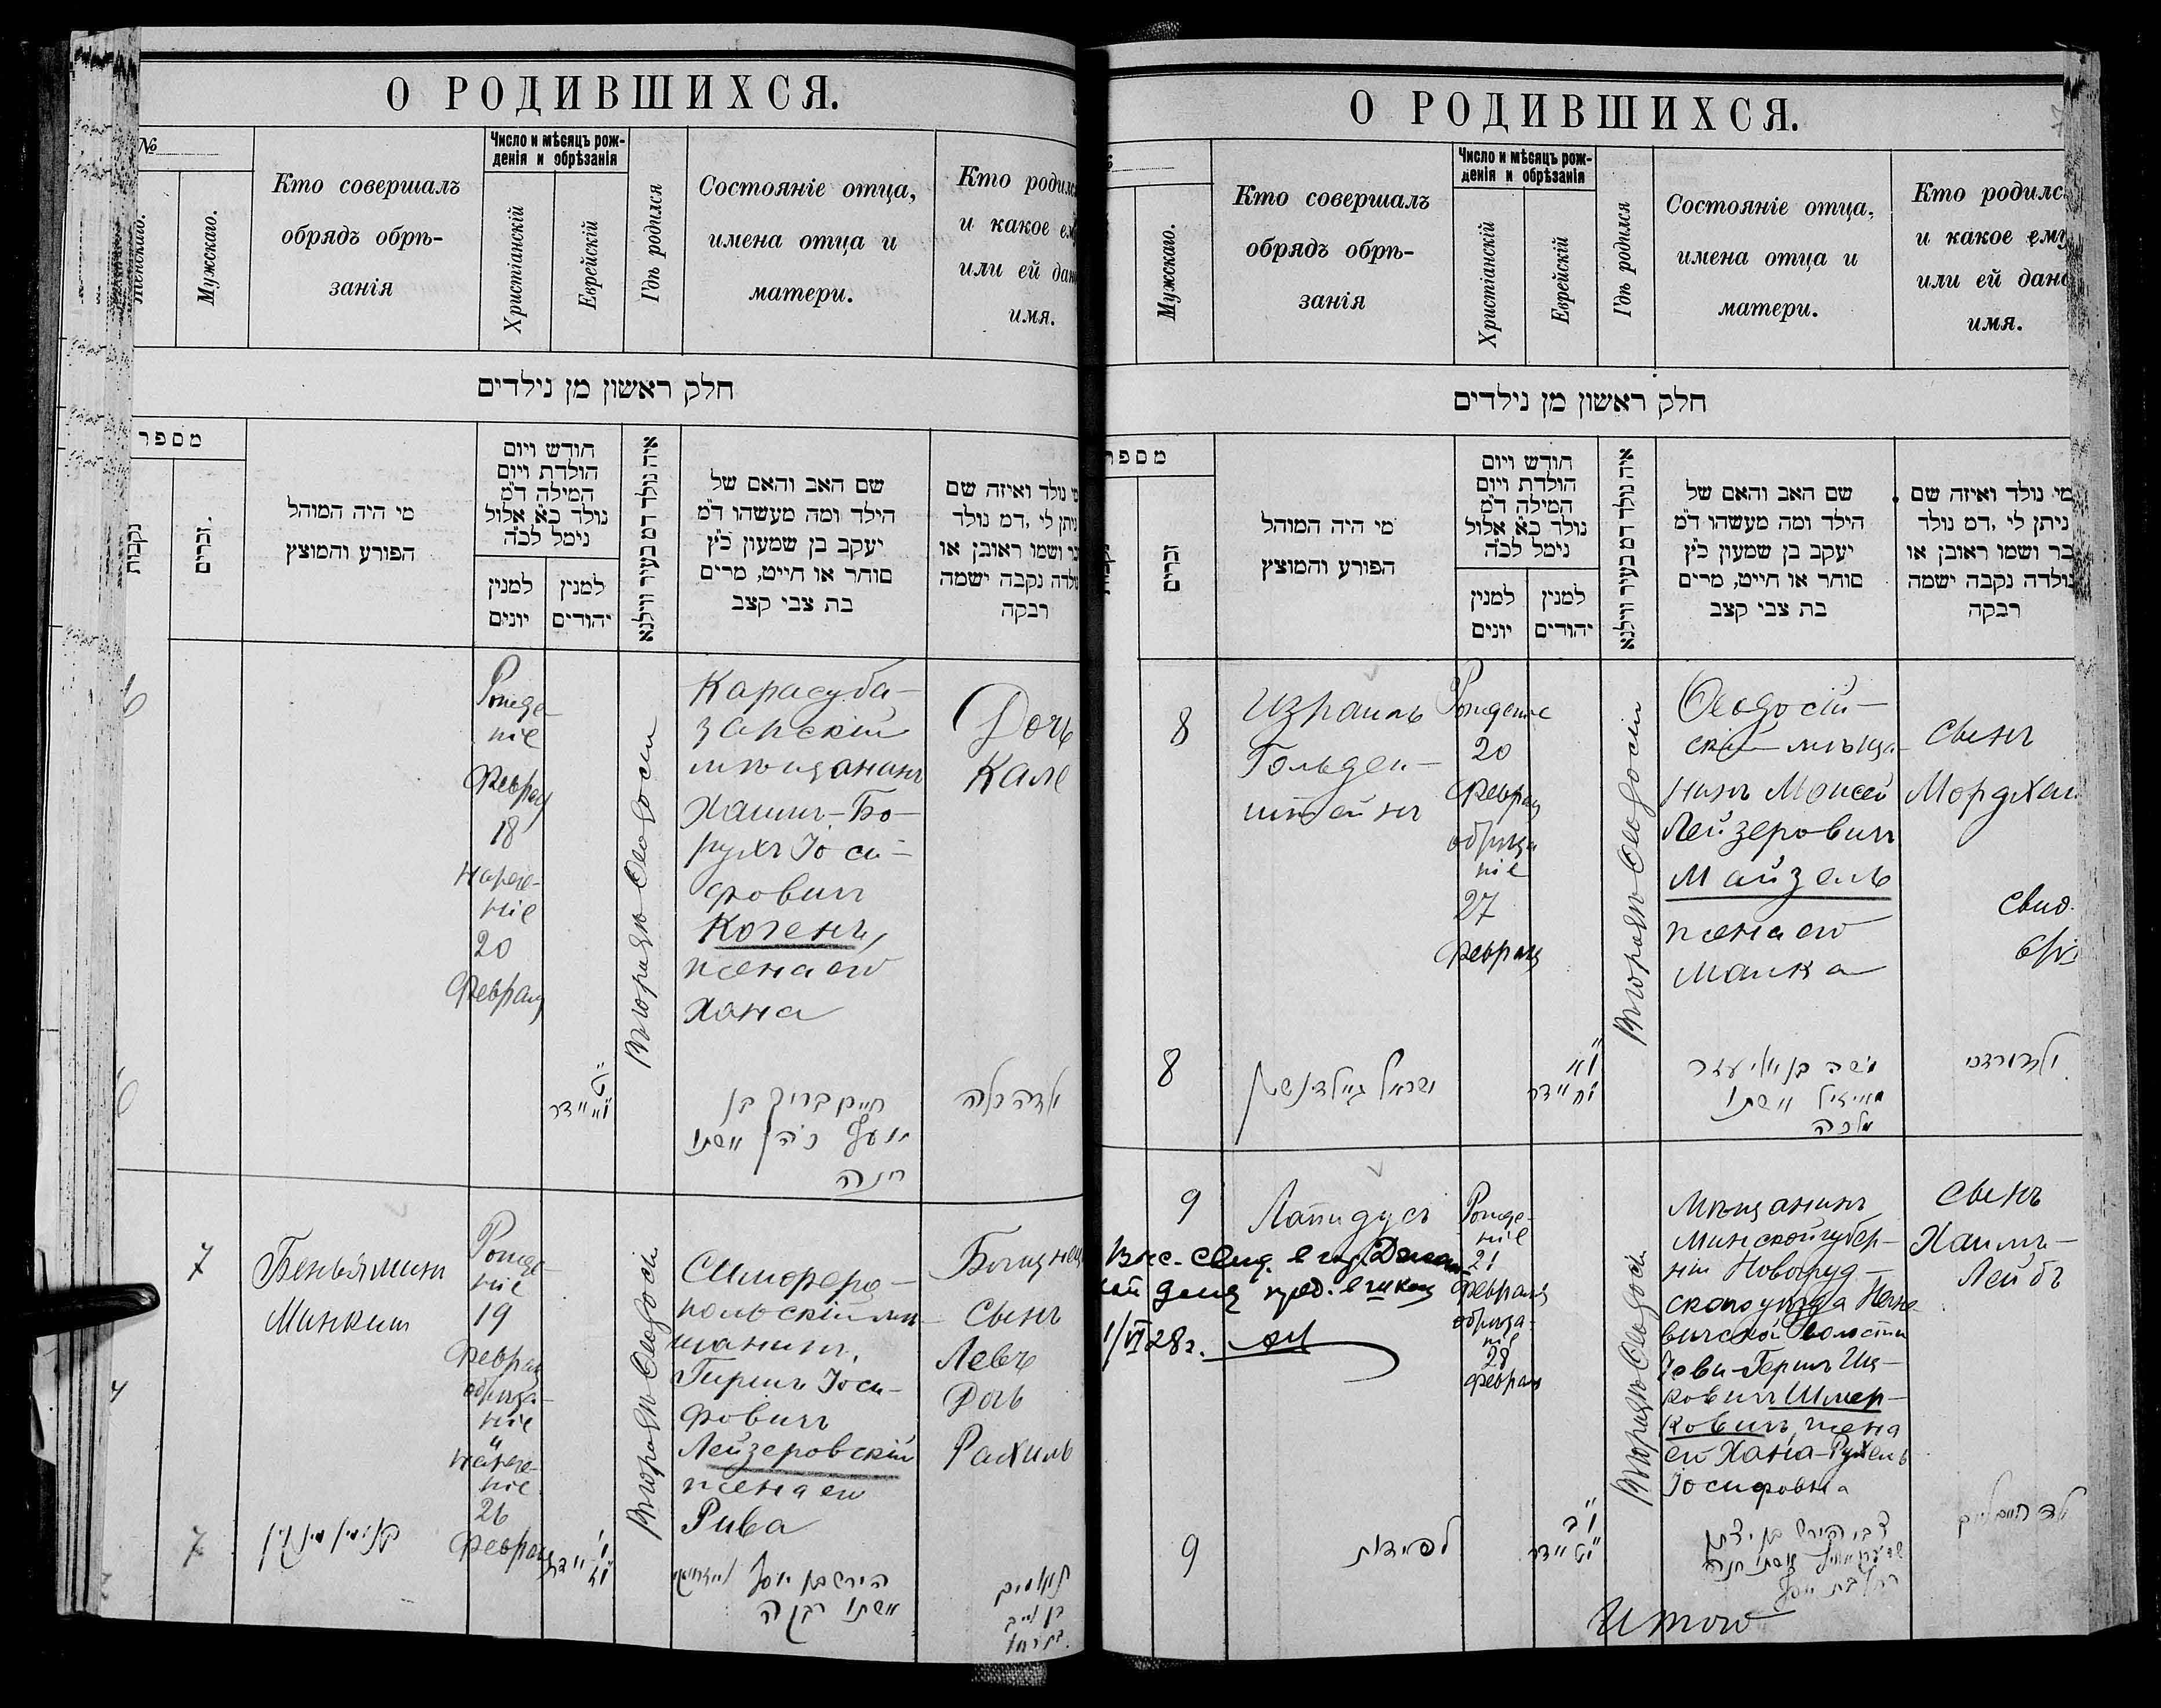 О РОДИВШИХСЯ.
№
Женскаго.
Мужскаго.
Кто совершалъ
обрядъ обрѣ-
занія
Число и мѣсяцъ рож-
денія и обрѣзанія
Христіанскій
Еврейскій
Гдѣ родился
Состояніе отца,
имена отца и
матери.
Кто родилс
и какое ем
или ей дан
имя.
חלק ראשון מן נילדים
מספר
נקבות
זכרים.
מי היה המוהל
הפורע והמוצץ
חודש ויום
הולדת ויום
המילה ד״מ
נולד כ״א אלול
נימל לכ״ה
למנין
יונים
למנין
יהודים
איה נולד דמ בעיר ווילנא
שם האב והאם של
הילד ומה מעשהו ד״מ
יעקב בן שמעון כ״ץ
סוחר או חייט, מרים
בת צבי קצב
מי נולד ואיזה שם
ניתן לי, דמ נולד
בר ושמו ראובן או
נולדה נקבה ישמה
רבקה
6
Рожде-
ніе
Февраля
18
Нарече-
ніе
20
Февраля
Въ городѣ Ѳеодосіи
Карасуба-
зарскій
мѣщанинъ
Хаимъ-Бо-
рухъ Іоси-
фовичъ
Когенъ,
жена его
Хана
Дочь
Кале
6
חיים ברוך בן
יוסף כהן ואשתו
חנה
ילדה כלה
7
Беньяминъ
Минкинъ
Рожде-
ніе
19
Февраля
обрѣза-
ніе
и
нарече-
ніе
26
Февраля
Въ городѣ Ѳеодосіи
Симферо-
польскій мѣ-
щанинъ,
Гиршъ Іоси-
фовичъ
Лейзеровскій
жена его
Рива
Близнецы
Сынъ
Левъ
Дочь
Рахиль
4
7
בנימין מינקין
הירש בן יוסף לייזרווסקי
ואשתו רבקה
תאומים
בן לייב
בת רחל
О РОДИВШИХСЯ.
Мужскаго.
Кто совершалъ
обрядъ обрѣ-
занія
Число и мѣсяцъ рож-
денія и обрѣзанія
Христіанскій
Еврейскій
Гдѣ родился
Состояніе отца,
имена отца и
матери.
Кто родилс
и какое ему
или ей дано
имя.
חלק ראשון מן נילדים
מספר
זכרים
מי היה המוהל
הפורע והמוצץ
חודש ויום
הולדת ויום
המילה ד״מ
נולד כ״א אלול
נימל לכ״ה
למנין
יונים
למנין
יהודים
איה נולד דמ בעיר ווילנא
שם האב והאם של
הילד ומה מעשהו ד״מ
יעקב בן שמעון כ״ץ
סוחר או חייט, מרים
בת צבי קצב
מי נולד ואיזה שם
ניתן לי, דמ נולד
בר ושמו ראובן או
נולדה נקבה ישמה
רבקה
8
Израиль
Гольден-
штейнъ
Рожденіе
20
Февраля
обрѣза-
ніе
27
Февраля
Въ городѣ Ѳеодосіи
Ѳеодосій-
скій мѣща-
нинъ Моисей
Лейзеровичъ
Майзель
жена его
Малка
Сынъ
Мордхай
8
ישראל גאלדנשטיין
משה בן אליעזר
מאיזיל ואשתו
מלכה
ילד מרדכי
9
Лапидусъ
1/VI 28 г.
Рожде-
ніе
21
Февраля
обрѣза-
ніе
28
Февраля
Въ городѣ Ѳеодосіи
Мѣщанинъ
Минской губер-
ніи Новогруд-
скаго уѣзда
волости
Гершъ Иц-
ковичъ Шмер-
ковичъ, жена
его Хана-Рухель
Іосифовна
Сынъ
Хаимъ-
Лейбъ
9
לפידות
ילד חיים לייב
Итого